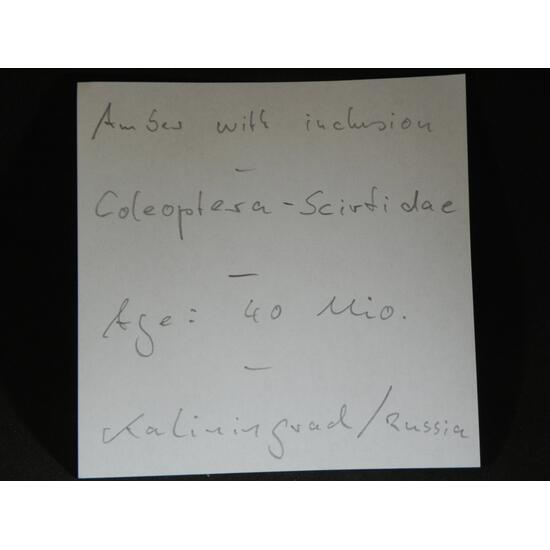 Amber with inclusion
-
Coleoptera - Scirtidae
-
Age: 40 Mio.
-
Kaliningrad/Russia